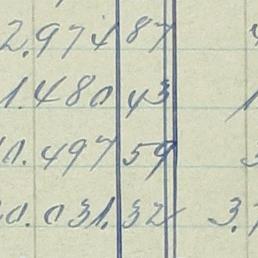 2.974 87
1.480 43
0.497 59
0.031.32 3.